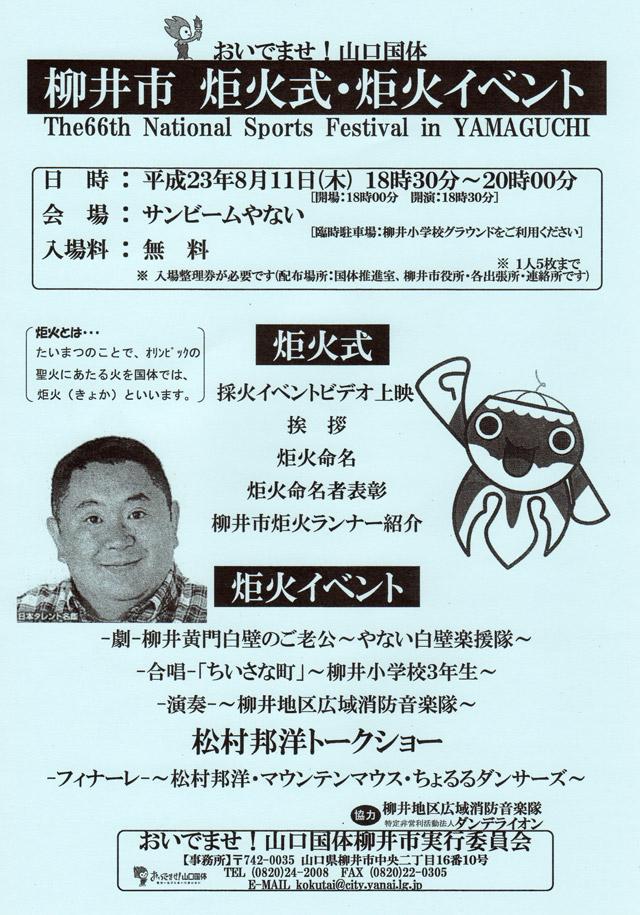 おいでませ！山口国体
柳井市 炬火式・炬火イベント
The66th National Sports Festival in YAMAGUCHI
日 時：平成23年8月11日(木) 18時30分～20時00分
[開場：18時00分 開演：18時30分]
会 場：サンビームやない
[臨時駐車場：柳井小学校グラウンドをご利用ください]
入場料：無 料
※ 1人5枚まで
※ 入場整理券が必要です(配布場所：国体推進室、柳井市役所・各出張所・連絡所です)
炬火とは・・・
たいまつのことで、ｵﾘﾝﾋﾟｯｸの
聖火にあたる火を国体では、
炬火（きょか）といいます。
炬火式
採火イベントビデオ上映
挨 拶
炬火命名
炬火命名者表彰
柳井市炬火ランナー紹介
日本タレント名鑑
炬火イベント
-劇-柳井黄門白壁のご老公～やない白壁楽援隊～
-合唱-「ちいさな町」～柳井小学校3年生～
-演奏-～柳井地区広域消防音楽隊～
松村邦洋トークショー
-フィナーレ-～松村邦洋・マウンテンマウス・ちょるるダンサーズ～
協力 柳井地区広域消防音楽隊
特定非営利活動法人 ダンデライオン
おいでませ！山口国体柳井市実行委員会
【事務所】〒742-0035 山口県柳井市中央二丁目16番10号
TEL (0820)24-2008 FAX (0820)22-0305
E-MAIL kokutai@city.yanai.lg.jp
おいでませ！山口国体